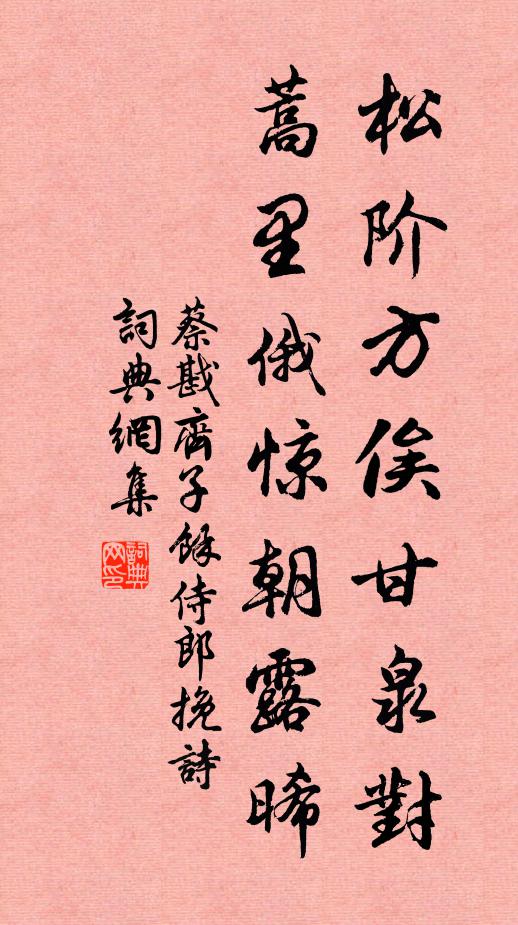 松阶方俟甘泉對
蒿里俄惊朝露晞
蔡戡齊子餘侍郎挽詩
詞典網集
詞典网印